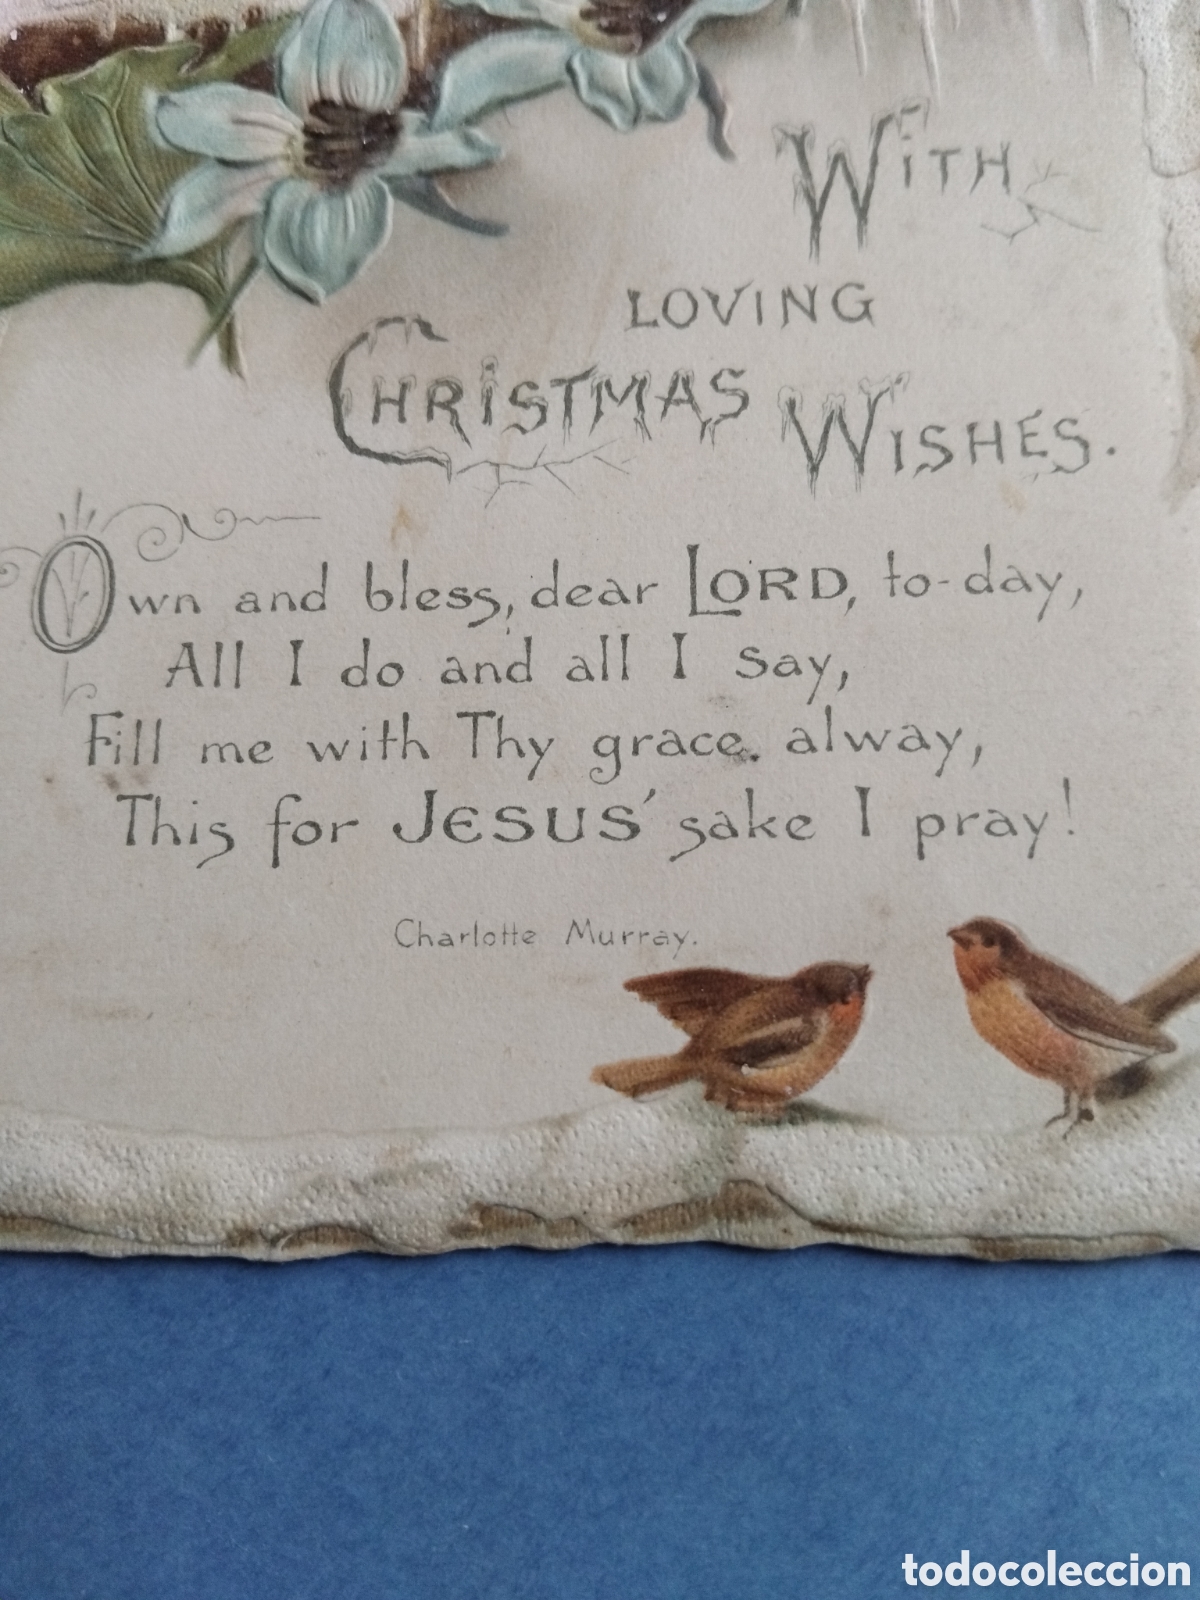 With
LOVING
CHRISTMAS WISHES.
Own and bless, dear LORD, to-day,
All I do and all I say,
Fill me with Thy grace. alway,
This for JESUS' sake I pray!
Charlotte Murray.
todocoleccion